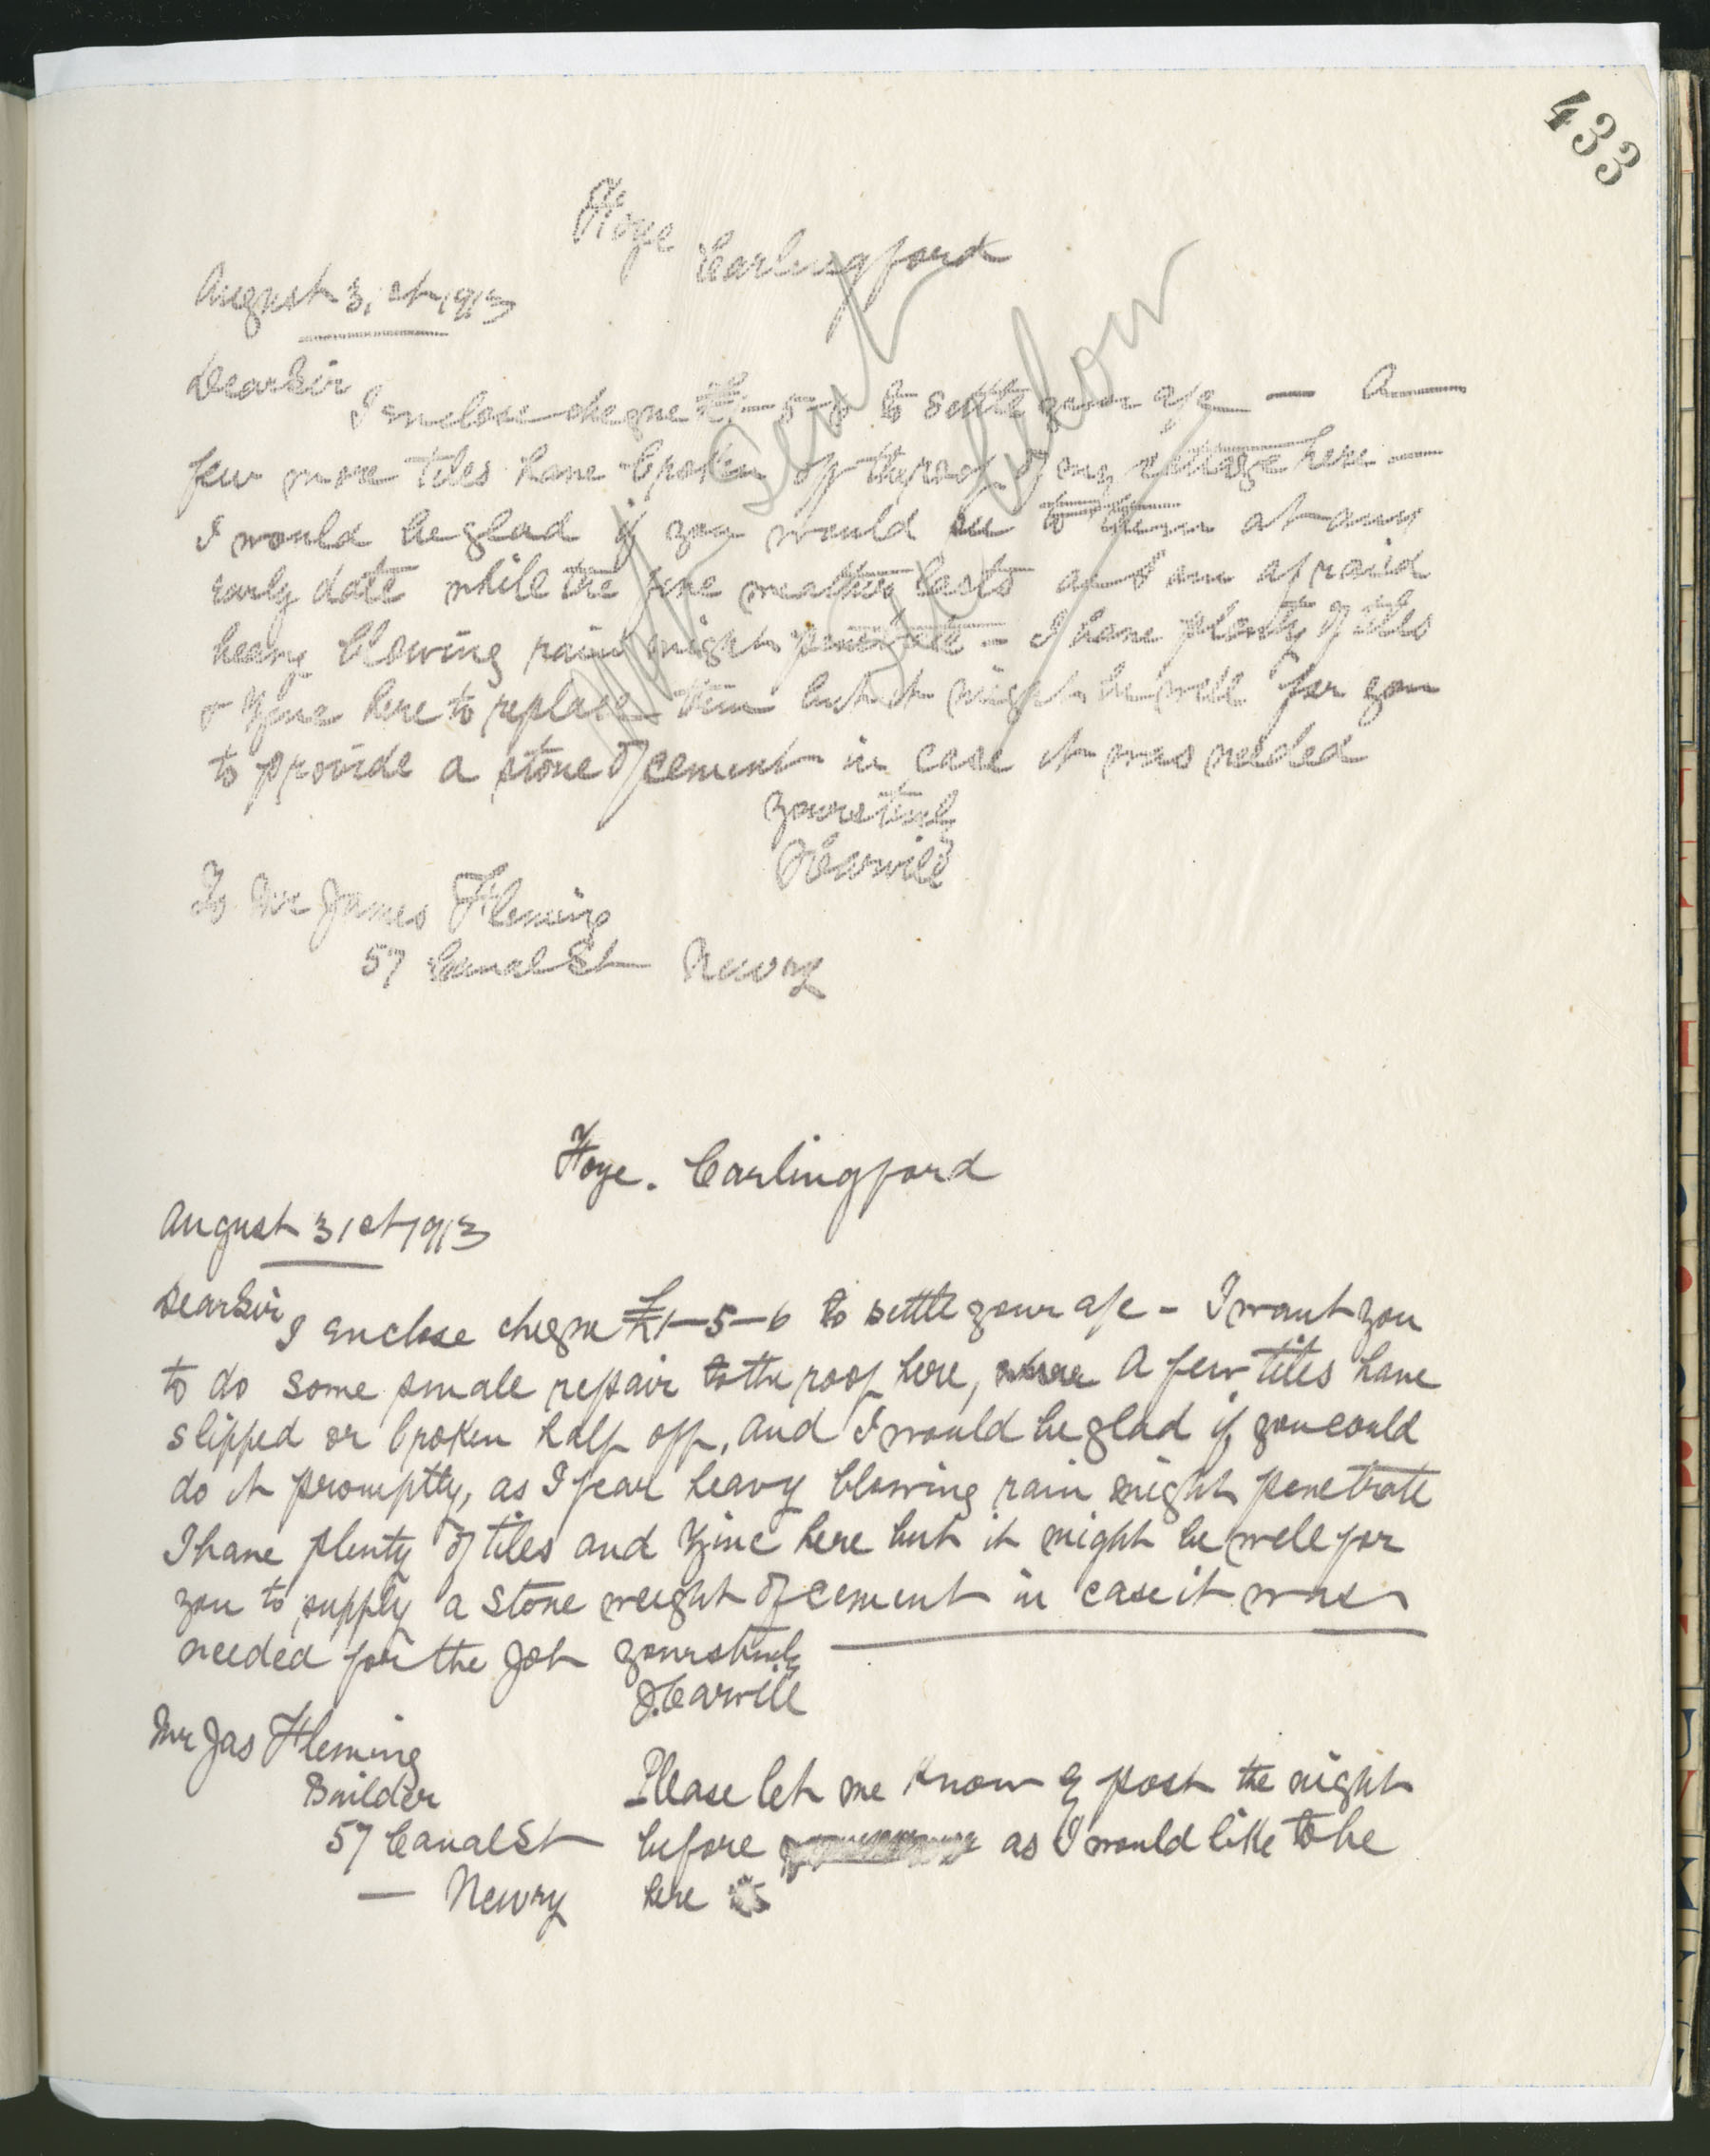 433
Foye
Carlingford
August 31st 1913
Dear Sir
I enclose cheque £1-5-6 to settle your a/c — A
few more tiles have broken off the roof of my cottage here —
I would be glad if you would see to them at any
early date while the fine weather lasts as I am afraid
heavy blowing rain might penetrate - I have plenty of tiles
& Zinc here to replace them but it might be well for you
to provide a stone of cement in case it was needed
Yours truly
JCarvill
To Mr James Fleming
57 Canal St Newry
not sent
see below
Foye. Carlingford
August 31st 1913
Dear Sir
I enclose cheque £1-5-6 to settle your a/c - I want you
to do some small repair to the roof here, where a few tiles have
slipped or broken half off, and I would be glad if you could
do it promptly, as I fear heavy blowing rain might penetrate
I have plenty of tiles and Zinc here but it might be well for
you to supply a stone weight of cement in case it was
needed for the Job yours truly
J.Carvill
Mr Jas Fleming
Builder
57 Canal St
— Newry
Please let me know by post the night
before as I would like to be
here